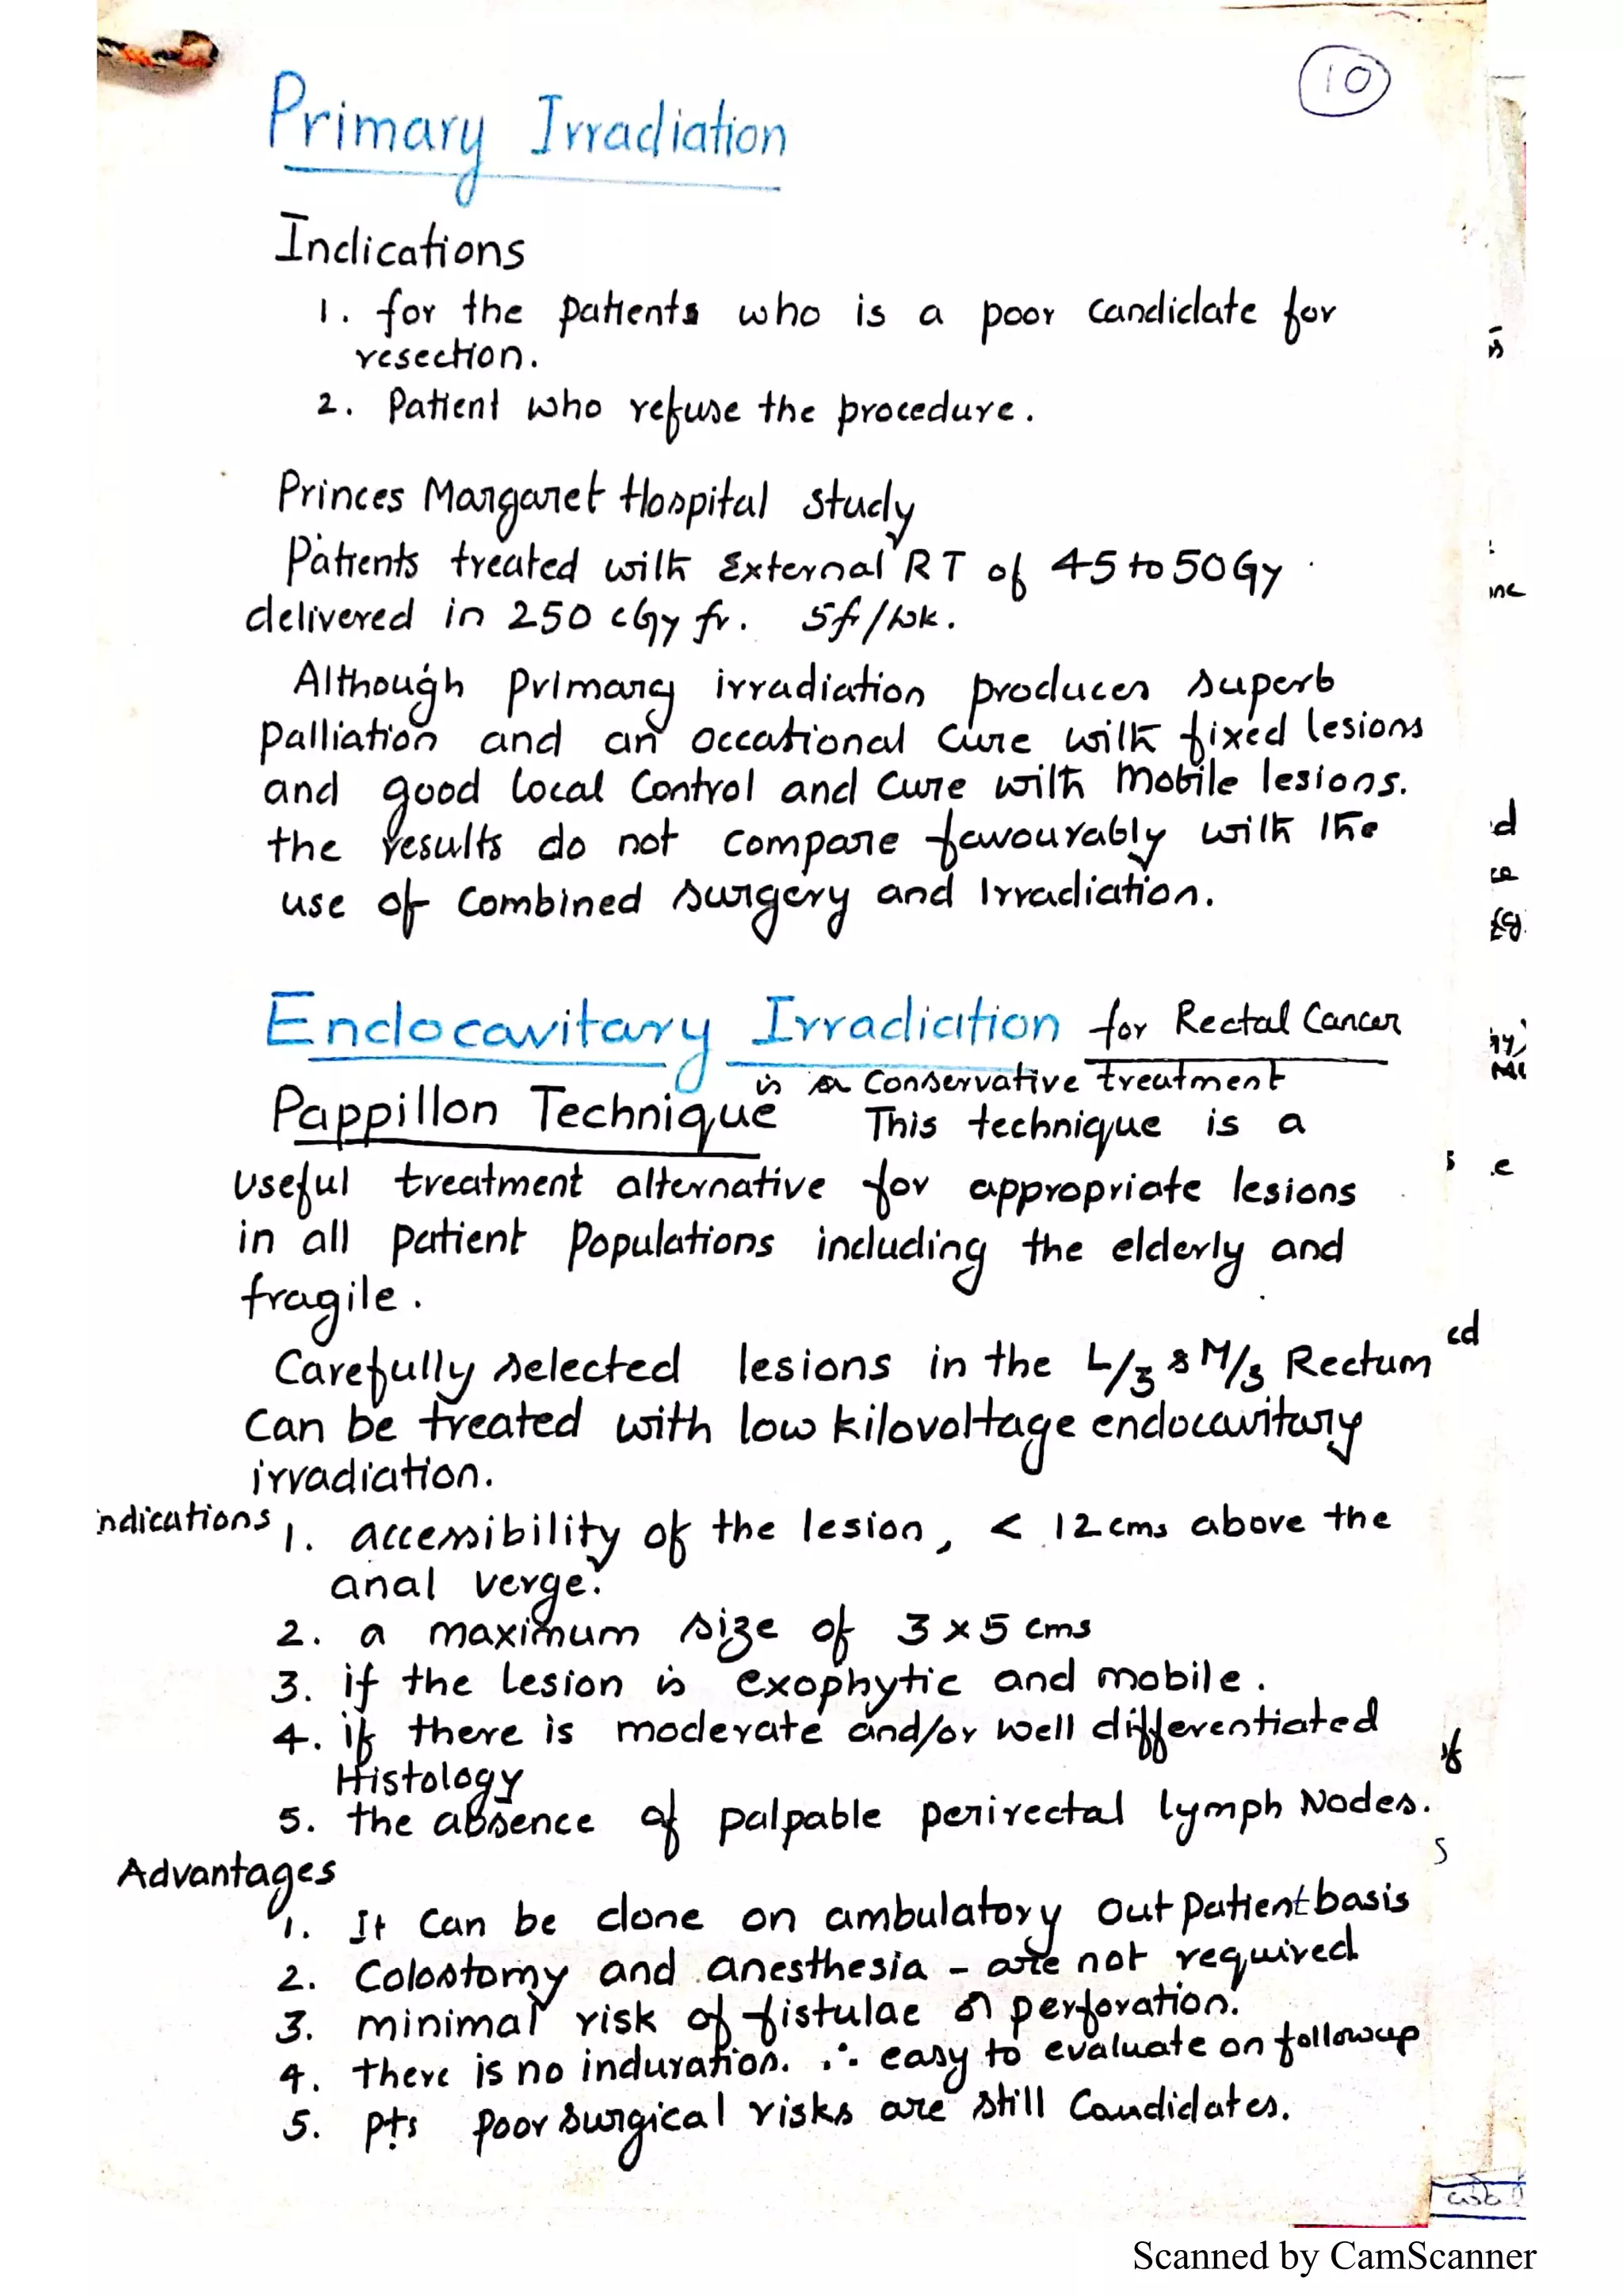 10
Primary Irradiation
Indications
1. for the patients who is a poor candidate for
resection.
2. Patient who refuse the procedure.
Princes Margaret Hospital study
Patients treated with External RT of 45 to 50Gy
delivered in 250 cGy fr. 5f/wk.
Although primary irradiation produces superb
palliation and an occational cure with fixed lesions
and good local control and cure with mobile lesions.
the results do not compare favourably with the
use of combined surgery and Irradiation.
Endocavitary Irradiation for Rectal Cancer
is a Conservative treatment
Pappillon Technique This technique is a
useful treatment alternative for appropriate lesions
in all patient populations including the elderly and
fragile.
Carefully selected lesions in the L/3 & M/3 Rectum
can be treated with low kilovoltage endocavitary
irradiation.
ndications 1. accessibility of the lesion, < 12 cms above the
anal verge.
2. a maximum size of 3 x 5 cms
3. if the lesion is exophytic and mobile.
4. if there is moderate and/or well differentiated
Histology
5. the absence of palpable perirectal lymph Nodes.
Advantages
1. It can be done on ambulatory out patient basis
2. Colostomy and anesthesia - are not required
3. minimal risk of fistulae or perforation.
4. there is no induration. ∴ easy to evaluate on followup
5. pts poor surgical risks are still candidates.
Scanned by CamScanner